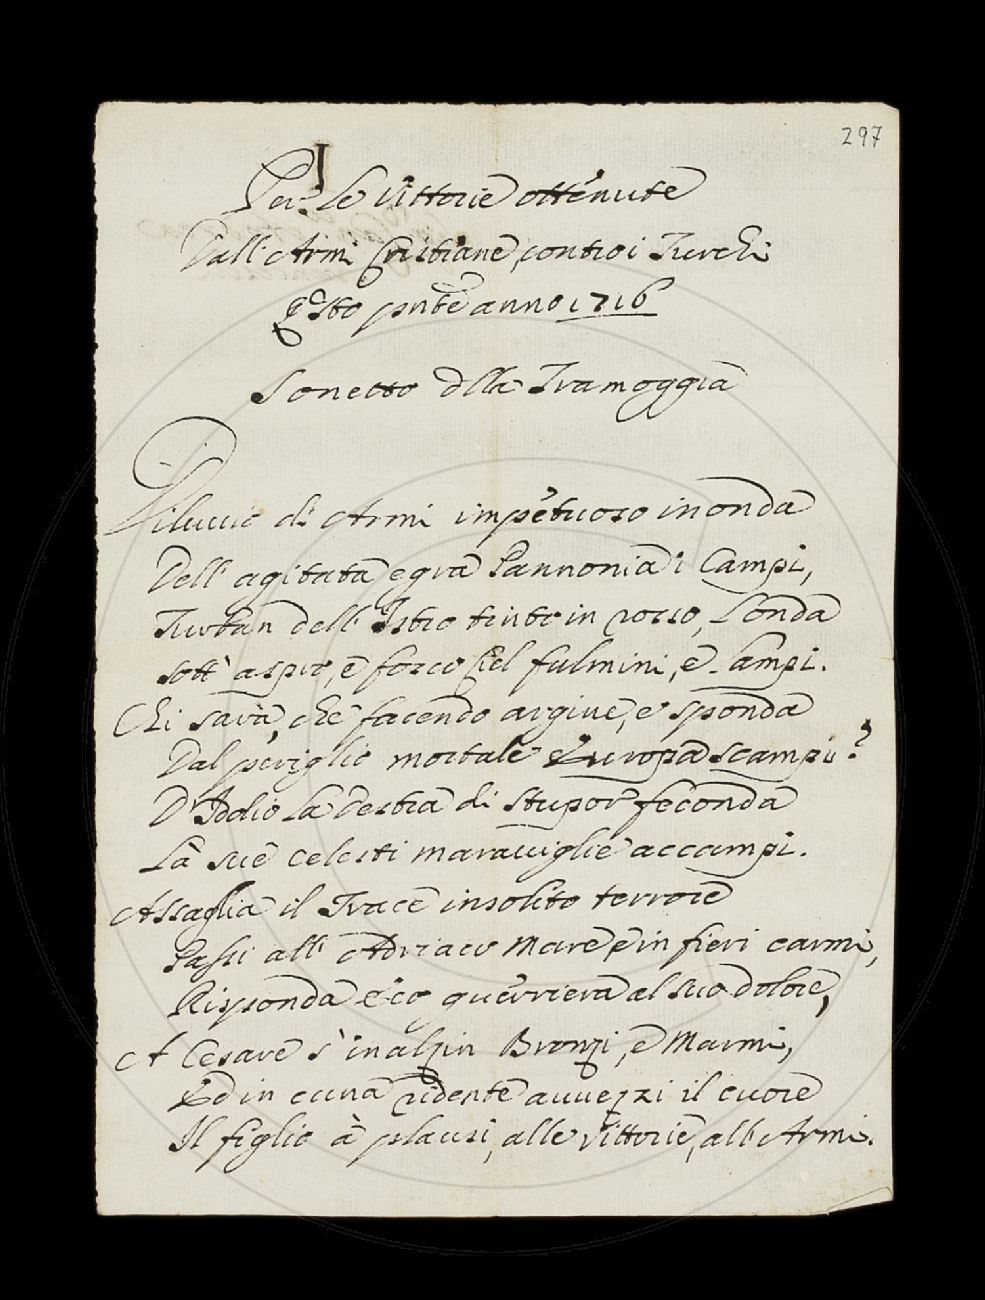 297
I
Per le Vittorie ottenute
Dall'Armi Cristiane contro i Turchi
q̃sto pñte anno 1716
Sonetto dlla Tramoggia
Diluuio di Armi impetuoso inonda
Dell'agitata egra Pannonia i Campi,
Turban dell'Istro tinto in rosso, l'onda
sott'aspro, e fosco Ciel fulmini, e lampi.
Chi sarà, che facendo argine, e sponda
Dal periglio mortale Europa scampi?
D'Iddio la destra di stupor feconda
Là sue celesti marauiglie accampi.
Assaglia il Trace insolito terrore
Passi all'Adriaco Mare, e in fieri carmi,
Risponda eco guerriera al suo dolore,
A Cesare s'inalzin Bronzi, e Marmi,
Ed in cuna ridente auuezzi il cuore
Il figlio à plausi, alle Vittorie, all'Armi.